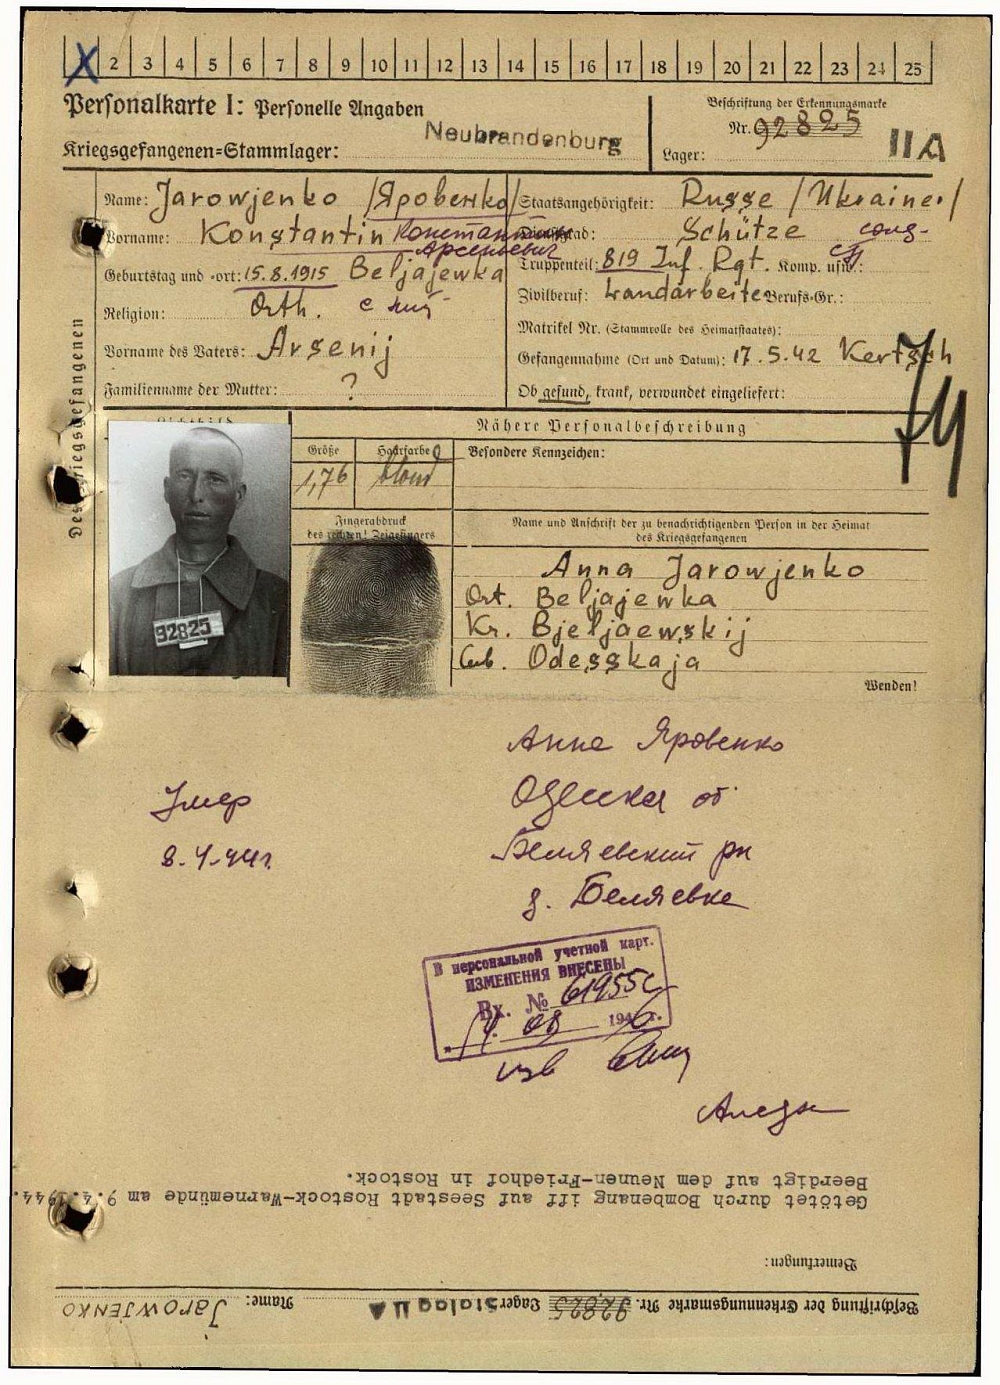 X 2 3 4 5 6 7 8 9 10 11 12 13 14 15 16 17 18 19 20 21 22 23 24 25
Personalkarte I: Personelle Angaben
Kriegsgefangenen=Stammlager: Neubrandenburg
Beschriftung der Erkennungsmarke
Nr. 92825
Lager: II A
Des Kriegsgefangenen
Name: Jarowjenko /Яровенко/
Vorname: Konstantin Константин
Арсеньевич
Geburtstag und -ort: 15.8.1915 Beljajewka
Religion: Orth.
Vorname des Vaters: Arsenij
Familienname der Mutter: ?
Staatsangehörigkeit: Russe /Ukrainer/
Dienstgrad: Schütze солд-
Truppenteil: 819 Inf. Rgt. Komp. usw.: сп
Zivilberuf: Landarbeiter Berufs-Gr.:
Matrikel Nr. (Stammrolle des Heimatstaates):
Gefangennahme (Ort und Datum): 17.5.42 Kertsch
Ob gesund, krank, verwundet eingeliefert:
Nähere Personalbeschreibung
Größe Haarfarbe Besondere Kennzeichen:
1,76 blond
Fingerabdruck
des rechten! Zeigefingers
92825
Name und Anschrift der zu benachrichtigenden Person in der Heimat
des Kriegsgefangenen
Anna Jarowjenko
Ort. Beljajewka
Kr. Bjeljaewskij
Gub. Odesskaja
Wenden!
Анна Яровенко
Одесская об
Беляевский рн
д. Беляевка
Умер
8-4-44г.
В персональной учетной карт.
ИЗМЕНЕНИЯ ВНЕСЕНЫ
Вх. № 61955с
14. 08 1946 г.
Beschriftung der Erkennungsmarke Nr. 92825 Lager Stalag II A Name: JAROWJENKO
Bemerkungen:
Getötet durch Bombenang iff auf Seestadt Rostock-Warnemünde am 9.4.1944.
Beerdigt auf dem Neunen-Friedhof in Rostock.